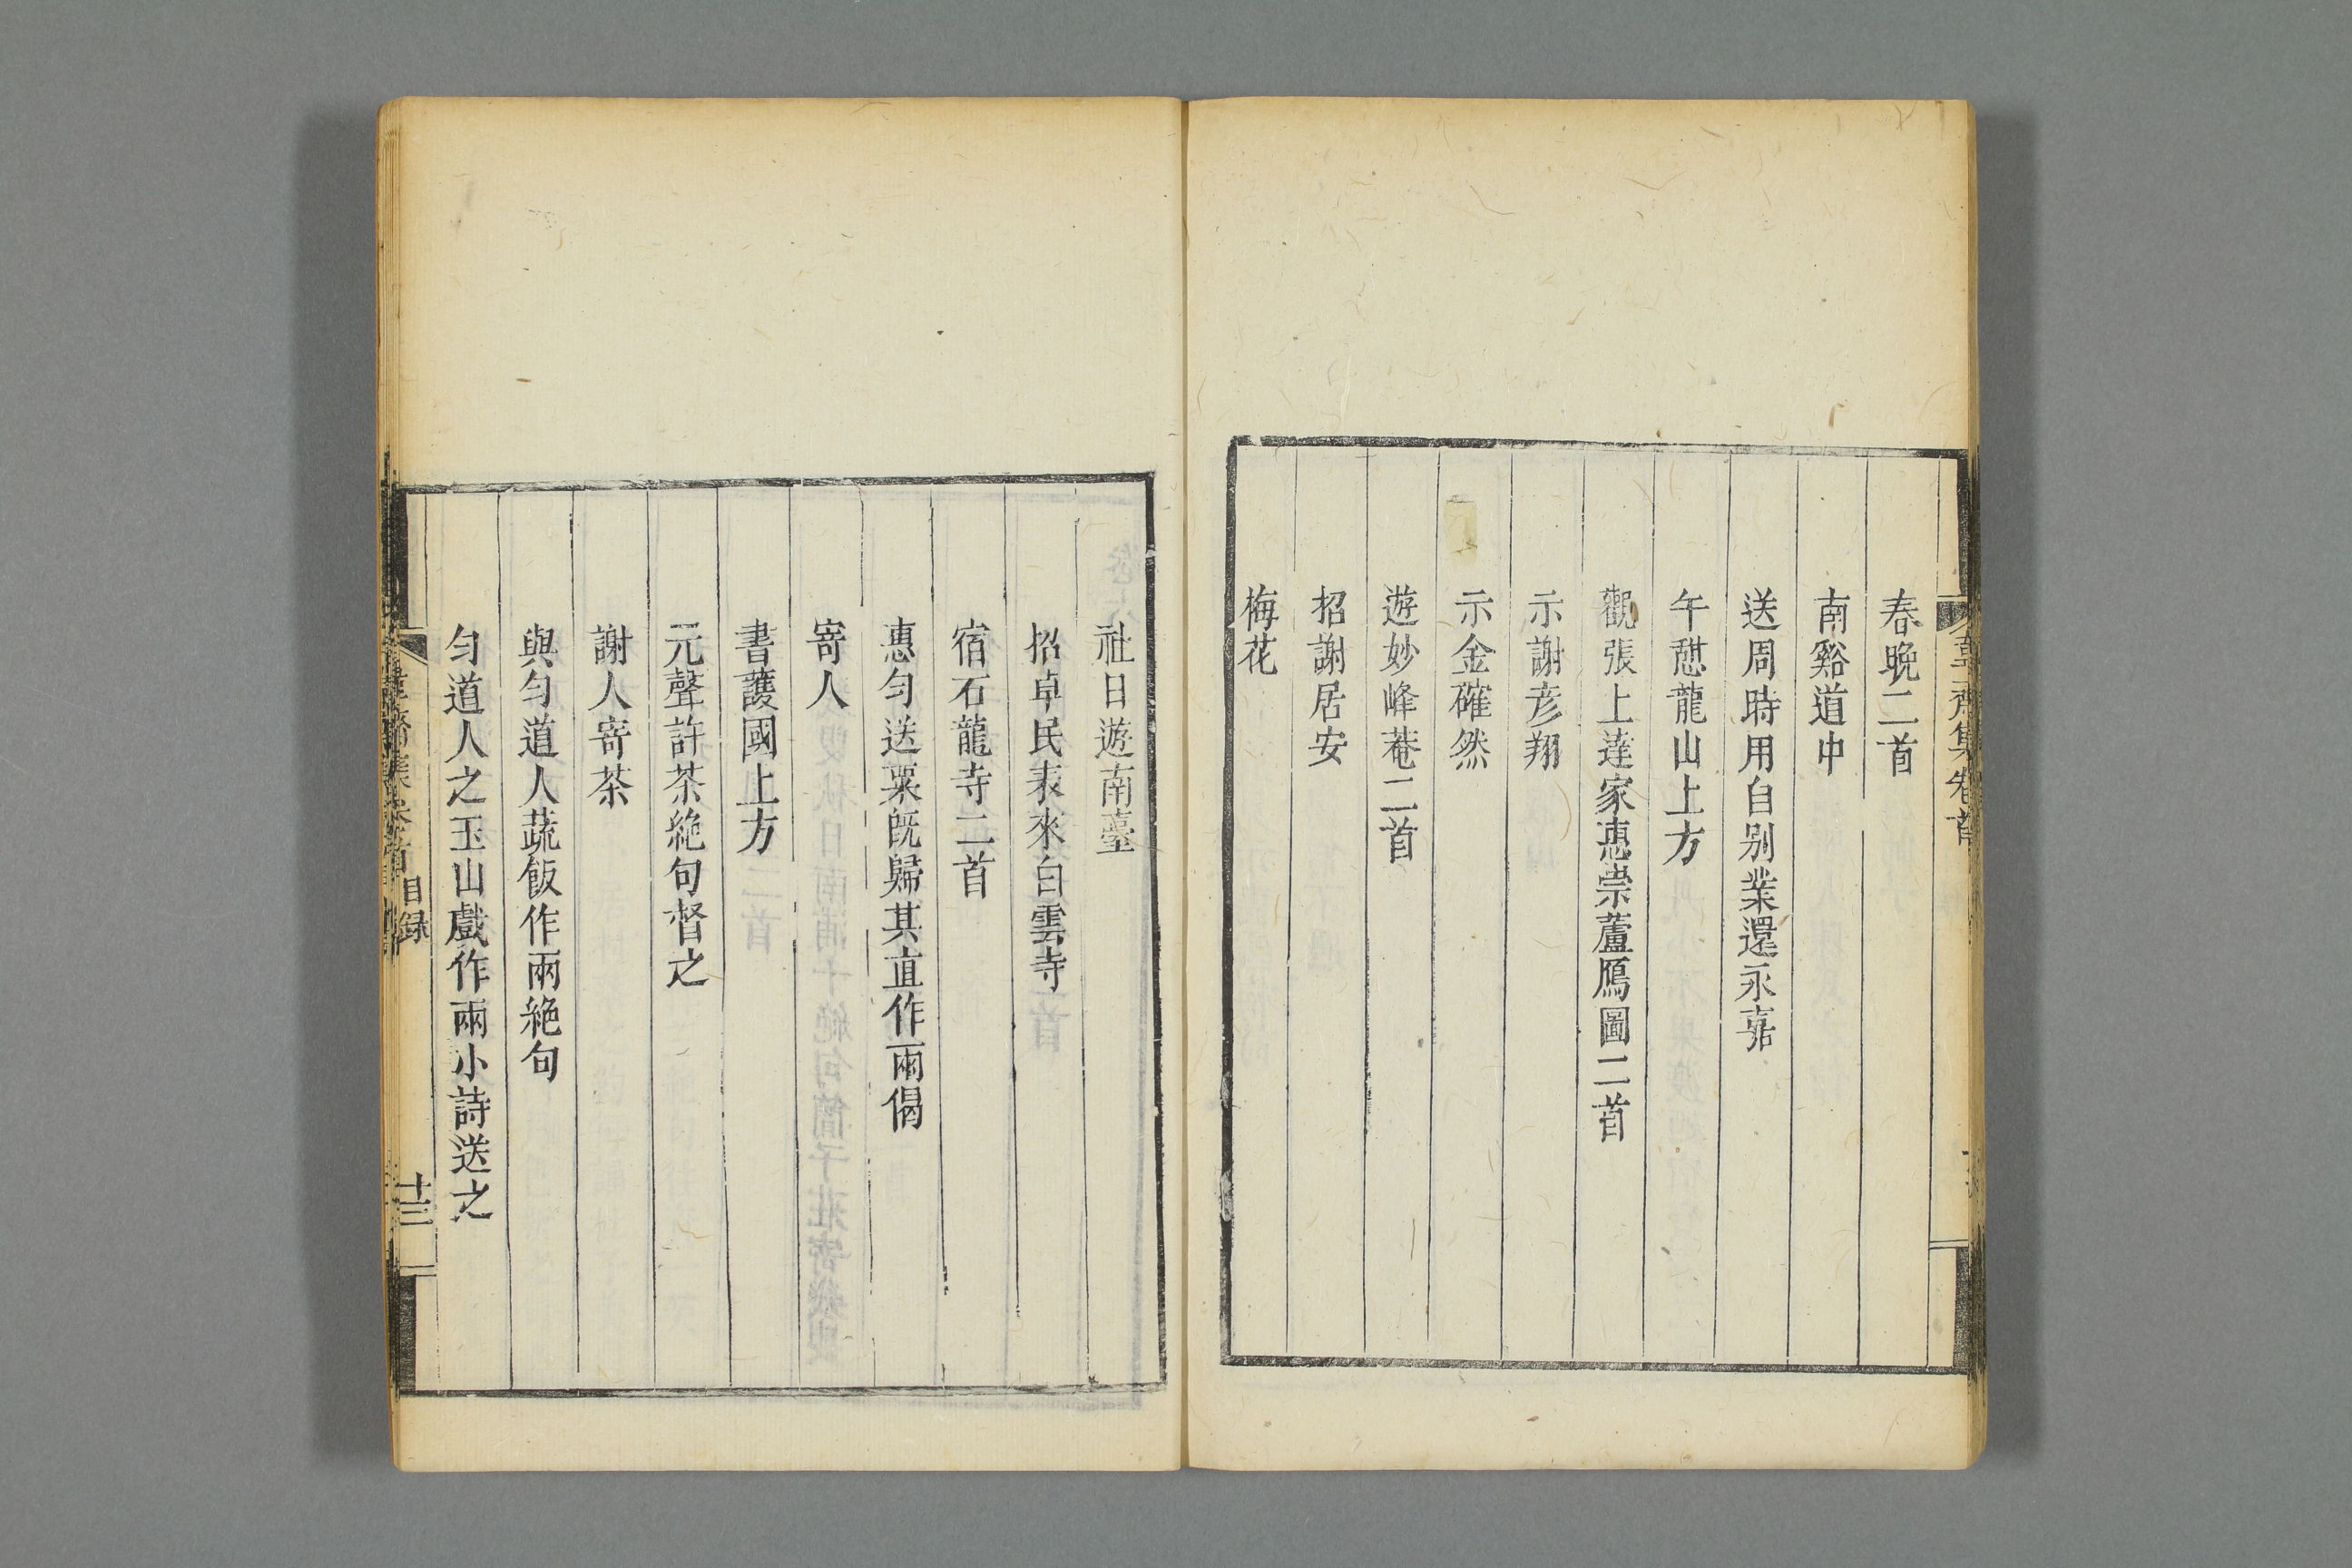 春晩二首
南谿道中
送周時用自别業還永嘉
午憇龍山上方
觀張上達家惠崇蘆鴈圖二首
示謝彦翔
示金確然
遊妙峰菴二首
招謝居安
梅花
社日遊南臺
招卓民表來白雲寺
宿石龍寺二首
惠勻送粟旣歸其直作兩偈
寄人
書護國上方
元聲許茶絶句督之
謝人寄茶
與勻道人蔬飯作兩絶句
勻道人之玉山戲作兩小詩送之
目録
十三